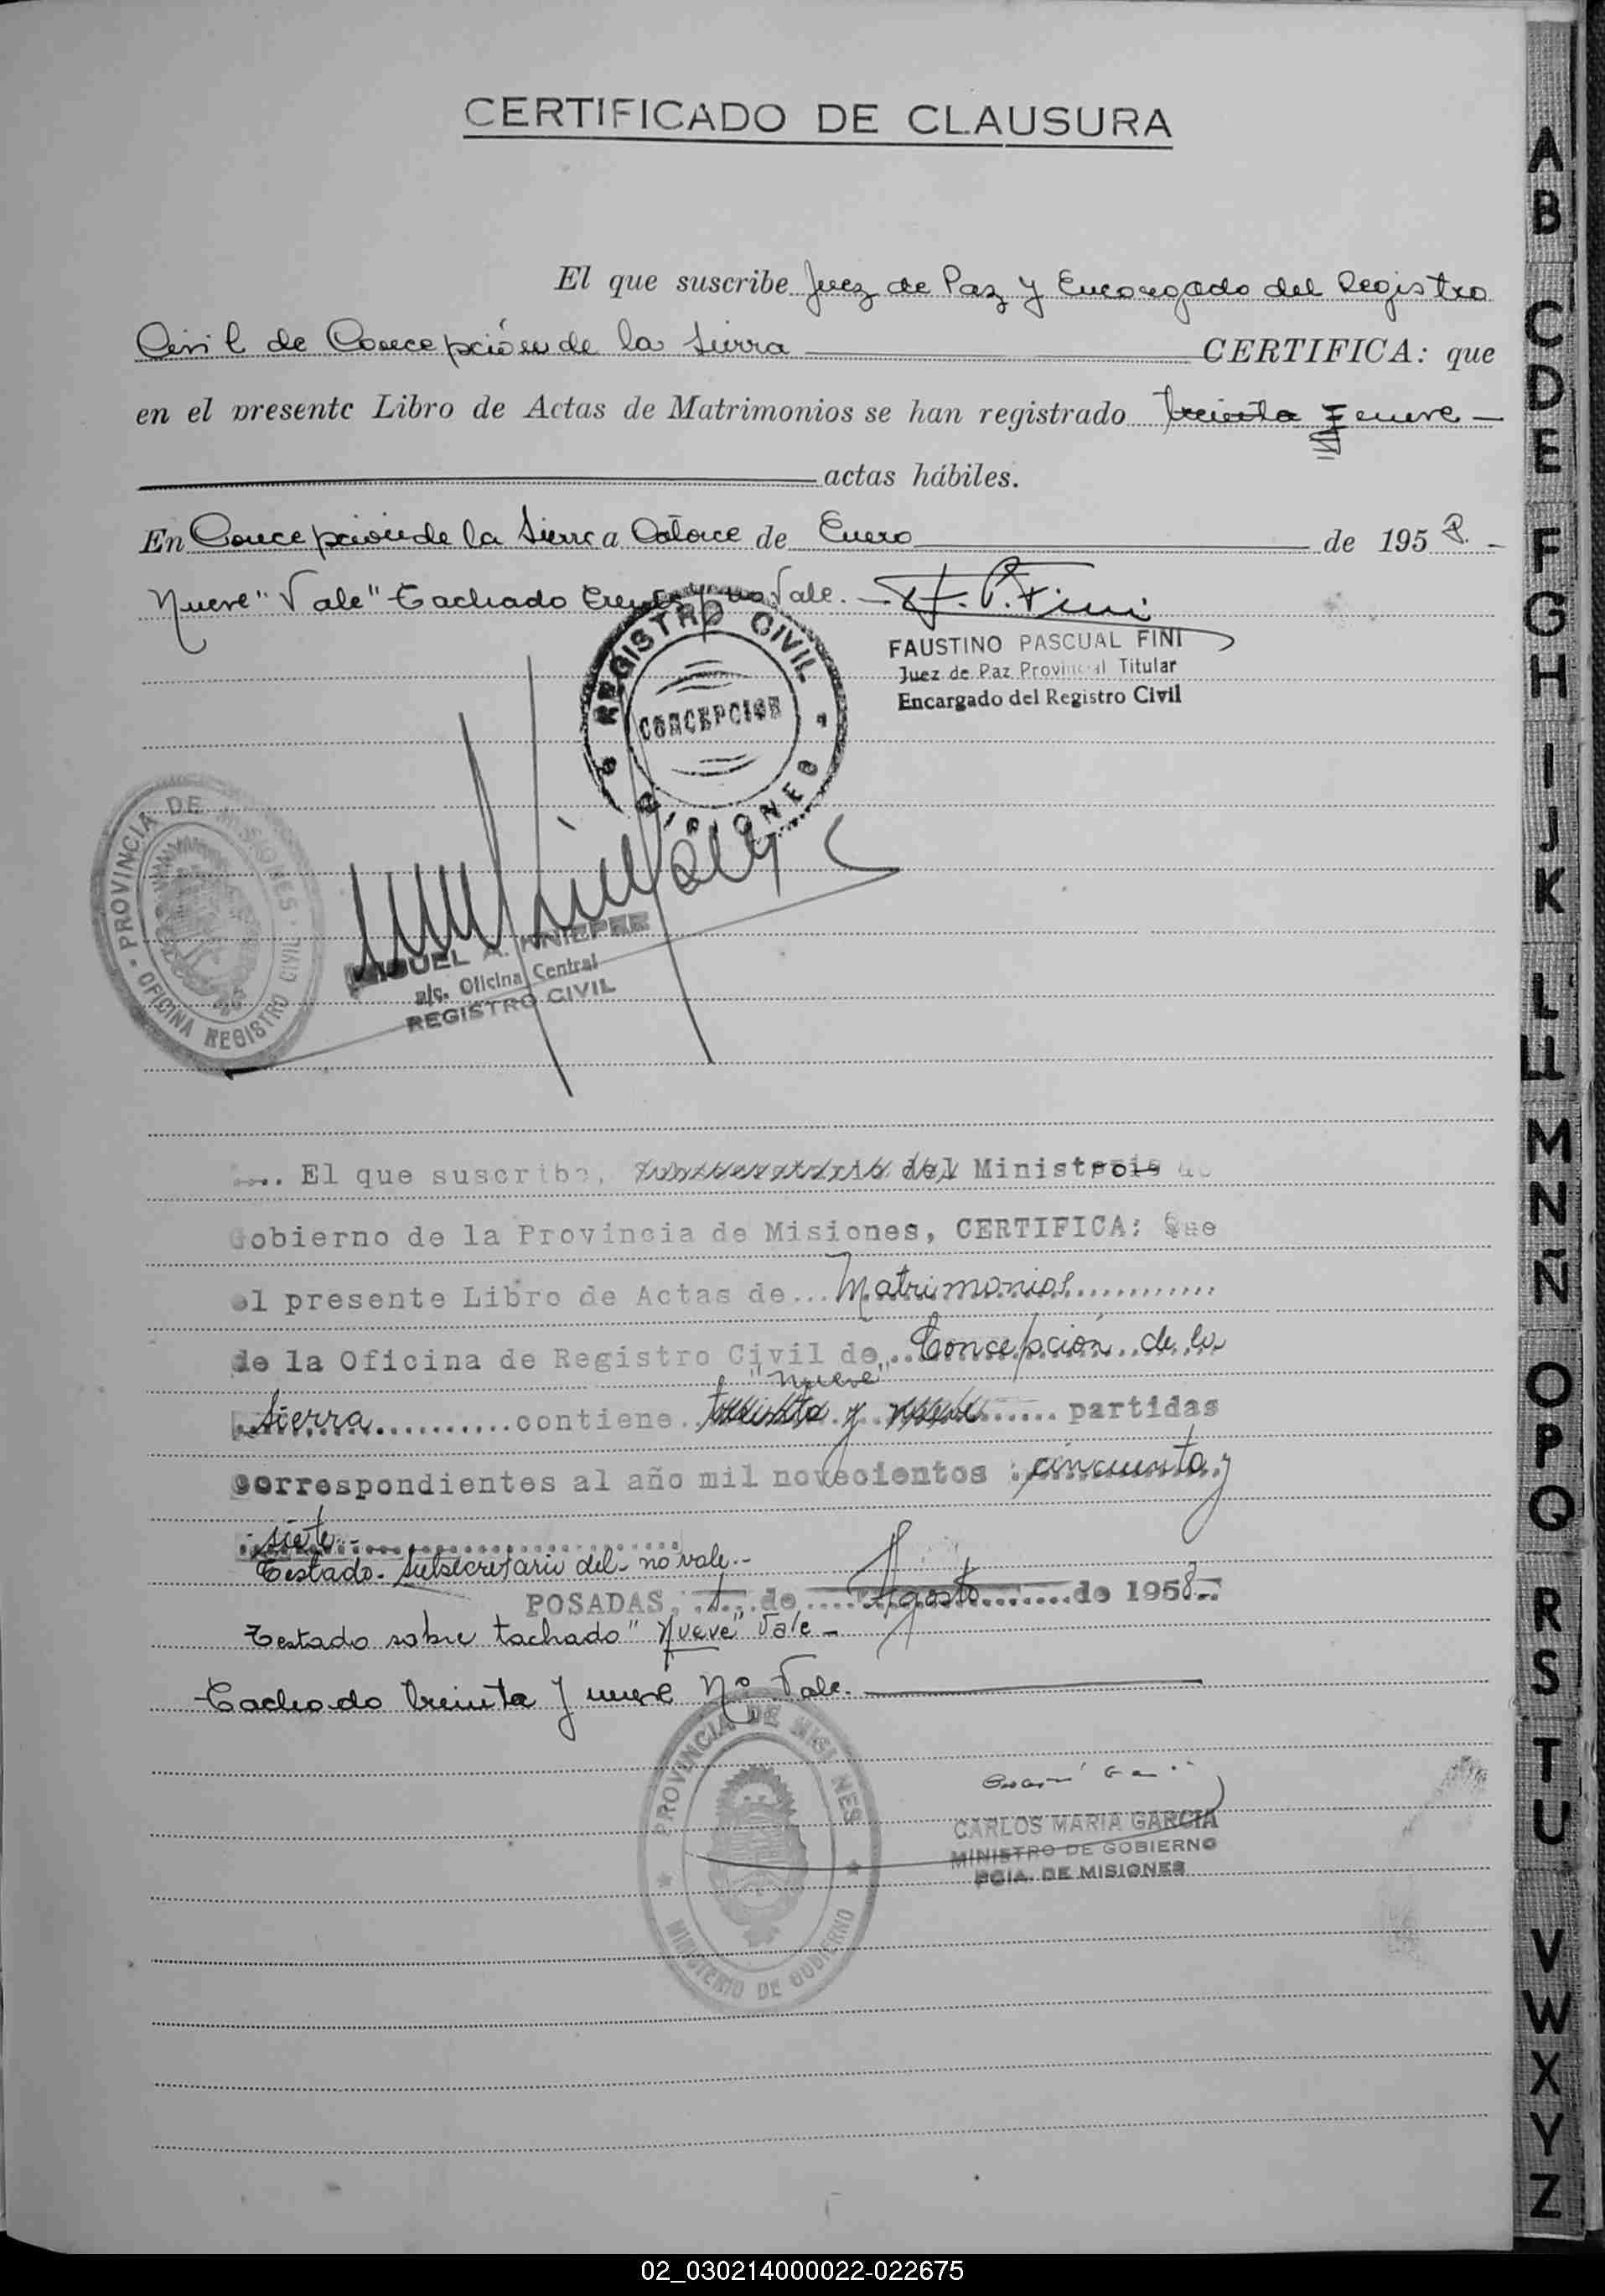 CERTIFICADO DE CLAUSURA
El que suscribe Juez de Paz y Encargado del Registro
Civil de Concepción de la Sierra CERTIFICA: que
en el presente Libro de Actas de Matrimonios se han registrado treinta y nueve
actas hábiles.
En Concepción de la Sierra a Catorce de Enero de 1958.-
Nueve" Vale" Tachado treinta y no Vale. F. P. Fini
REGISTRO CIVIL
CONCEPCION
MISIONES
FAUSTINO PASCUAL FINI
Juez de Paz Provincial Titular
Encargado del Registro Civil
PROVINCIA DE MISIONES
OFICINA REGISTRO CIVIL
MIGUEL A. KNIEPER
a/c. Oficina Central
REGISTRO CIVIL
El que suscribe, Subsecretario del Ministerio de
Gobierno de la Provincia de Misiones, CERTIFICA: Que
el presente Libro de Actas de... Matrimonios............
de la Oficina de Registro Civil de.. Concepción de la
"nueve"
Sierra...........contiene..treinta y nueve...... partidas
correspondientes al año mil novecientos cincuenta y
siete.-
Testado- Subsecretario del- no vale.-
POSADAS, 1 de Agosto de 1958.-
Testado sobre tachado "Nueve" Vale-
Tachado treinta y nueve Nº Vale.
PROVINCIA DE MISIONES
MINISTERIO DE GOBIERNO
CARLOS MARIA GARCIA
MINISTRO DE GOBIERNO
PCIA. DE MISIONES
A
B
C
D
E
F
G
H
I
J
K
L
Ll
M
N
Ñ
O
P
Q
R
S
T
U
V
W
X
Y
Z
02_030214000022-022675